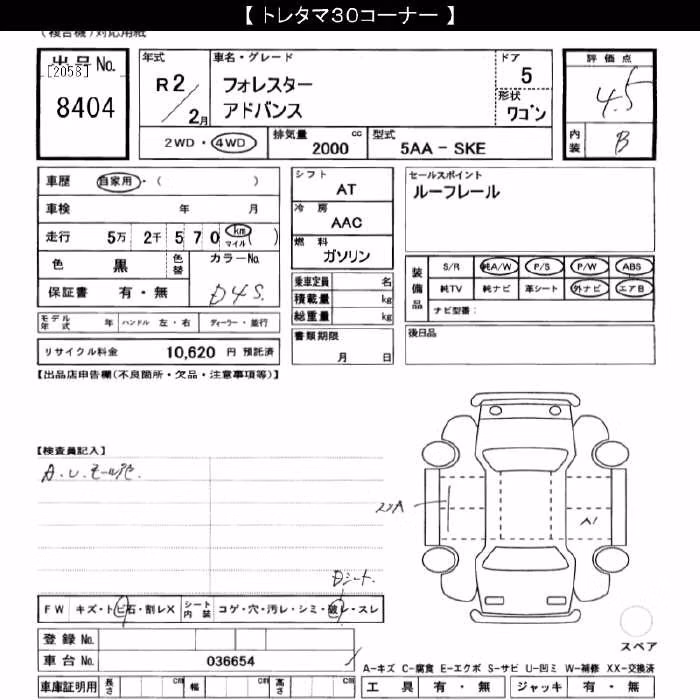 【 トレタマ30コーナー 】
(複合機)対応用紙
出品No.
[2058]
8404
年式
R2/2月
車名・グレード
フォレスター
アドバンス
ドア
5
形状
ワゴン
評価点
4.5
内装
B
2WD・4WD
排気量 2000 cc
型式 5AA - SKE
車歴 自家用・( )
車検 年 月
走行 5万 2千 5 7 0 km マイル ( )
色 黒 色替 カラーNo.
保証書 有・無 D4S.
モデル年式 年 ハンドル 左・右 ディーラー・並行
リサイクル料金 10,620 円 預託済
シフト AT
冷房 AAC
燃料 ガソリン
乗車定員 名
積載量 kg
総重量 kg
書類期限
月 日
セールスポイント
ルーフレール
装備品
S/R 純A/W P/S P/W ABS
純TV 純ナビ 革シート 外ナビ エアB
ナビ型番:
後日品
【出品店申告欄(不良箇所・欠品・注意事項等)】
【検査員記入】
A.U.モール
Dシート.
FW キズ・トビ石・割レX
シート内装 コゲ・穴・汚レ・シミ・破レ・スレ
登録 No.
車台 No. 036654
車庫証明用 長さ cm 幅 cm 高さ cm
A1
スペア
A-キズ C-腐食 E-エクボ S-サビ U-凹ミ W-補修 XX-交換済
工具 有・無 ジャッキ 有・無